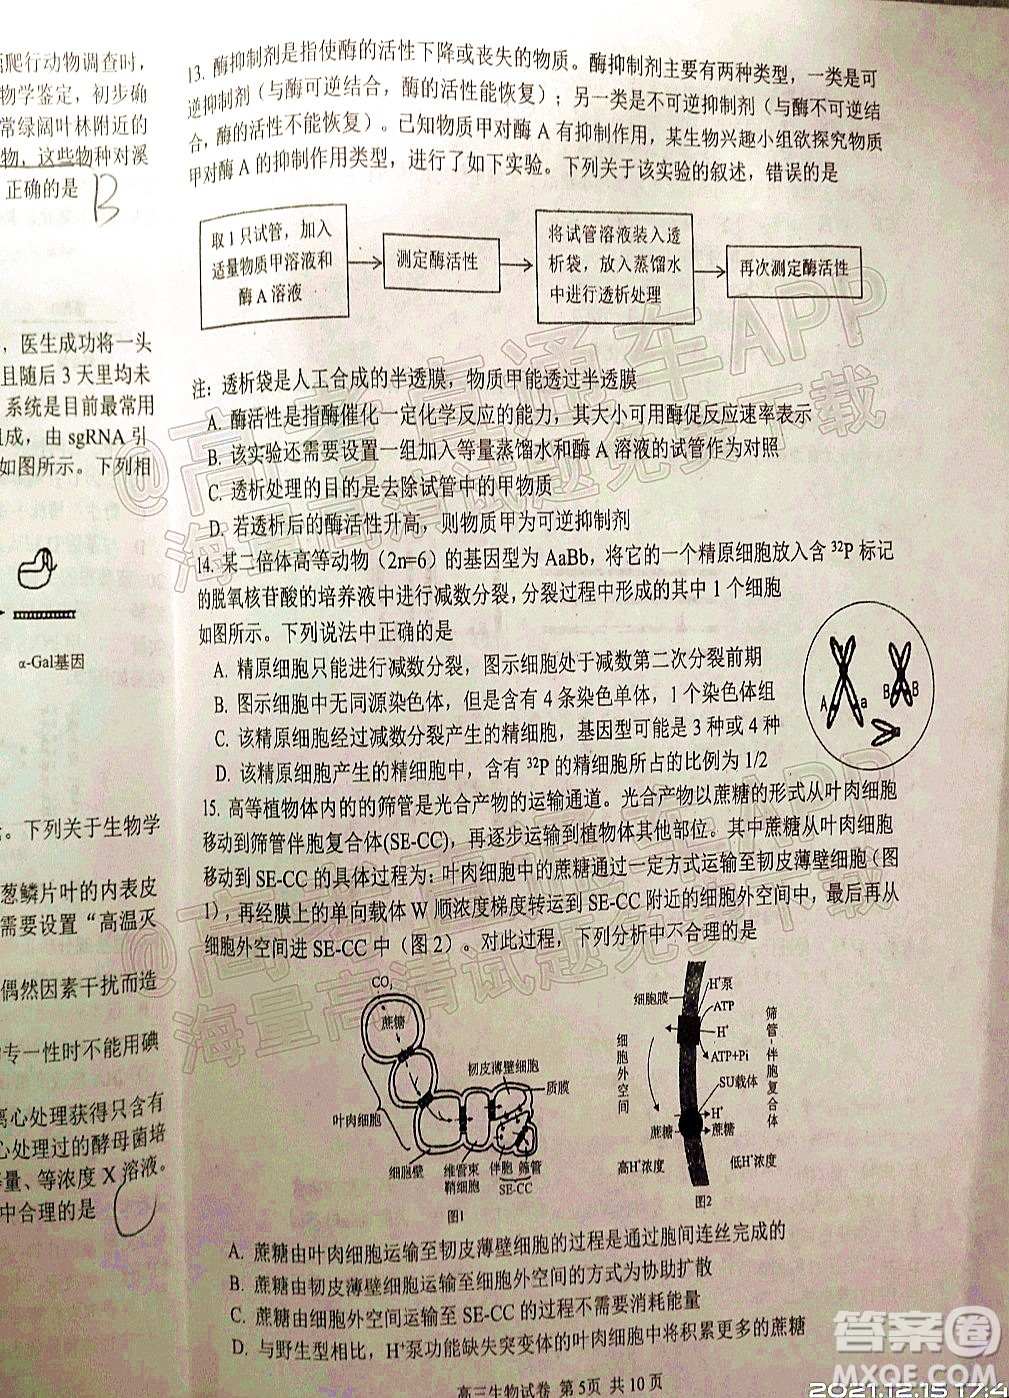 爬行动物调查时,
物学鉴定,初步确
常绿阔叶林附近的
物,这些物种对溪
正确的是 B
,医生成功将一头
且随后3天里均未
系统是目前最常用
组成,由sgRNA引
如图所示。下列相
α-Gal基因
。下列关于生物学
葱鳞片叶的内表皮
需要设置“高温灭
偶然因素干扰而造
专一性时不能用碘
离心处理获得只含有
心处理过的酵母菌培
等量、等浓度X溶液。
中合理的是
13. 酶抑制剂是指使酶的活性下降或丧失的物质。酶抑制剂主要有两种类型,一类是可
逆抑制剂(与酶可逆结合,酶的活性能恢复);另一类是不可逆抑制剂(与酶不可逆结
合,酶的活性不能恢复)。已知物质甲对酶A有抑制作用,某生物兴趣小组欲探究物质
甲对酶A的抑制作用类型,进行了如下实验。下列关于该实验的叙述,错误的是
取1只试管,加入
适量物质甲溶液和
酶A溶液
测定酶活性
将试管溶液装入透
析袋,放入蒸馏水
中进行透析处理
再次测定酶活性
注:透析袋是人工合成的半透膜,物质甲能透过半透膜
A. 酶活性是指酶催化一定化学反应的能力,其大小可用酶促反应速率表示
B. 该实验还需要设置一组加入等量蒸馏水和酶A溶液的试管作为对照
C. 透析处理的目的是去除试管中的甲物质
D. 若透析后的酶活性升高,则物质甲为可逆抑制剂
14. 某二倍体高等动物(2n=6)的基因型为AaBb,将它的一个精原细胞放入含³²P标记
的脱氧核苷酸的培养液中进行减数分裂,分裂过程中形成的其中1个细胞
如图所示。下列说法中正确的是
A. 精原细胞只能进行减数分裂,图示细胞处于减数第二次分裂前期
B. 图示细胞中无同源染色体,但是含有4条染色单体,1个染色体组
C. 该精原细胞经过减数分裂产生的精细胞,基因型可能是3种或4种
D. 该精原细胞产生的精细胞中,含有³²P的精细胞所占的比例为1/2
A a B B
15. 高等植物体内的的筛管是光合产物的运输通道。光合产物以蔗糖的形式从叶肉细胞
移动到筛管伴胞复合体(SE-CC),再逐步运输到植物体其他部位。其中蔗糖从叶肉细胞
移动到SE-CC的具体过程为:叶肉细胞中的蔗糖通过一定方式运输至韧皮薄壁细胞(图
1),再经膜上的单向载体W顺浓度梯度转运到SE-CC附近的细胞外空间中,最后再从
细胞外空间进SE-CC中(图2)。对此过程,下列分析中不合理的是
CO₂
蔗糖
韧皮薄壁细胞
质膜
叶肉细胞
细胞壁
维管束
鞘细胞
伴胞 筛管
SE-CC
图1
细胞膜
H⁺泵
ATP
H⁺
ATP+Pi
SU载体
H⁺
蔗糖
蔗糖
细胞外空间
筛管-伴胞复合体
高H⁺浓度
低H⁺浓度
图2
A. 蔗糖由叶肉细胞运输至韧皮薄壁细胞的过程是通过胞间连丝完成的
B. 蔗糖由韧皮薄壁细胞运输至细胞外空间的方式为协助扩散
C. 蔗糖由细胞外空间运输至SE-CC的过程不需要消耗能量
D. 与野生型相比,H⁺泵功能缺失突变体的叶肉细胞中将积累更多的蔗糖
高三生物试卷 第5页 共10页
@高考直通车APP
海量高清试题免费下载
@高考直通车APP
海量高清试题免费下载
答案圈
MXQE.COM
2021.12.15 17:4